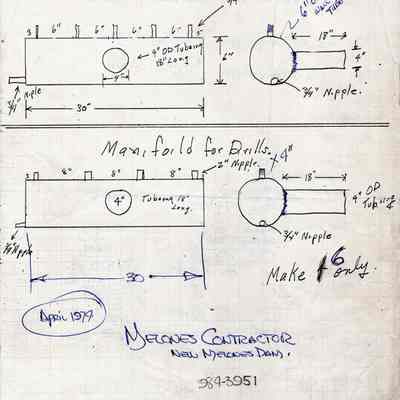 3" 6" 6" 6" 6" 5"
6" OD
4" OD Tubing
18" Long
4"
6"
18"
4"
3/4" Nipple
30"
3/4" Nipple.
Manifoild for Drills.
2" Nipple. x 4"
3" 8" 8" 8"
4" Tubing 18"
Long.
18"
4" OD
Tubing
3/4" Nipple
3/4" Nipple
30
Make 6 only.
April 1979
Melones Contractor
New Melones Dam.
984-3951